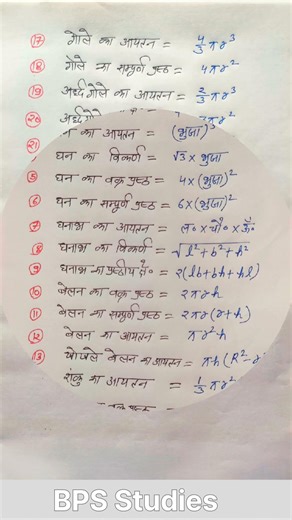 (17) गोले का आयतन = 4/3 πr³
(18) गोले का सम्पूर्ण पृष्ठ = 4πr²
(19) अर्द्धगोले का आयतन = 2/3 πr³
(20) अर्द्धगोले
(21) का आयतन = (भुजा)³
घन का विकर्ण = √3 × भुजा
(5) घन का वक्र पृष्ठ = 4×(भुजा)²
(6) घन का सम्पूर्ण पृष्ठ = 6×(भुजा)²
(7) घनाभ का आयतन = ल० × चौ० × ऊँ०
(8) घनाभ का विकर्ण = √l²+b²+h²
(9) घनाभ का पृष्ठीय क्षे० = 2(lb+bh+hl)
(10) बेलन का वक्र पृष्ठ = 2πrh
(11) बेलन का सम्पूर्ण पृष्ठ = 2πr(r+h)
(12) बेलन का आयतन = πr²h
(13) खोखले बेलन का आयतन = πh(R²-r
शंकु का आयतन = 1/3 πr²
BPS Studies